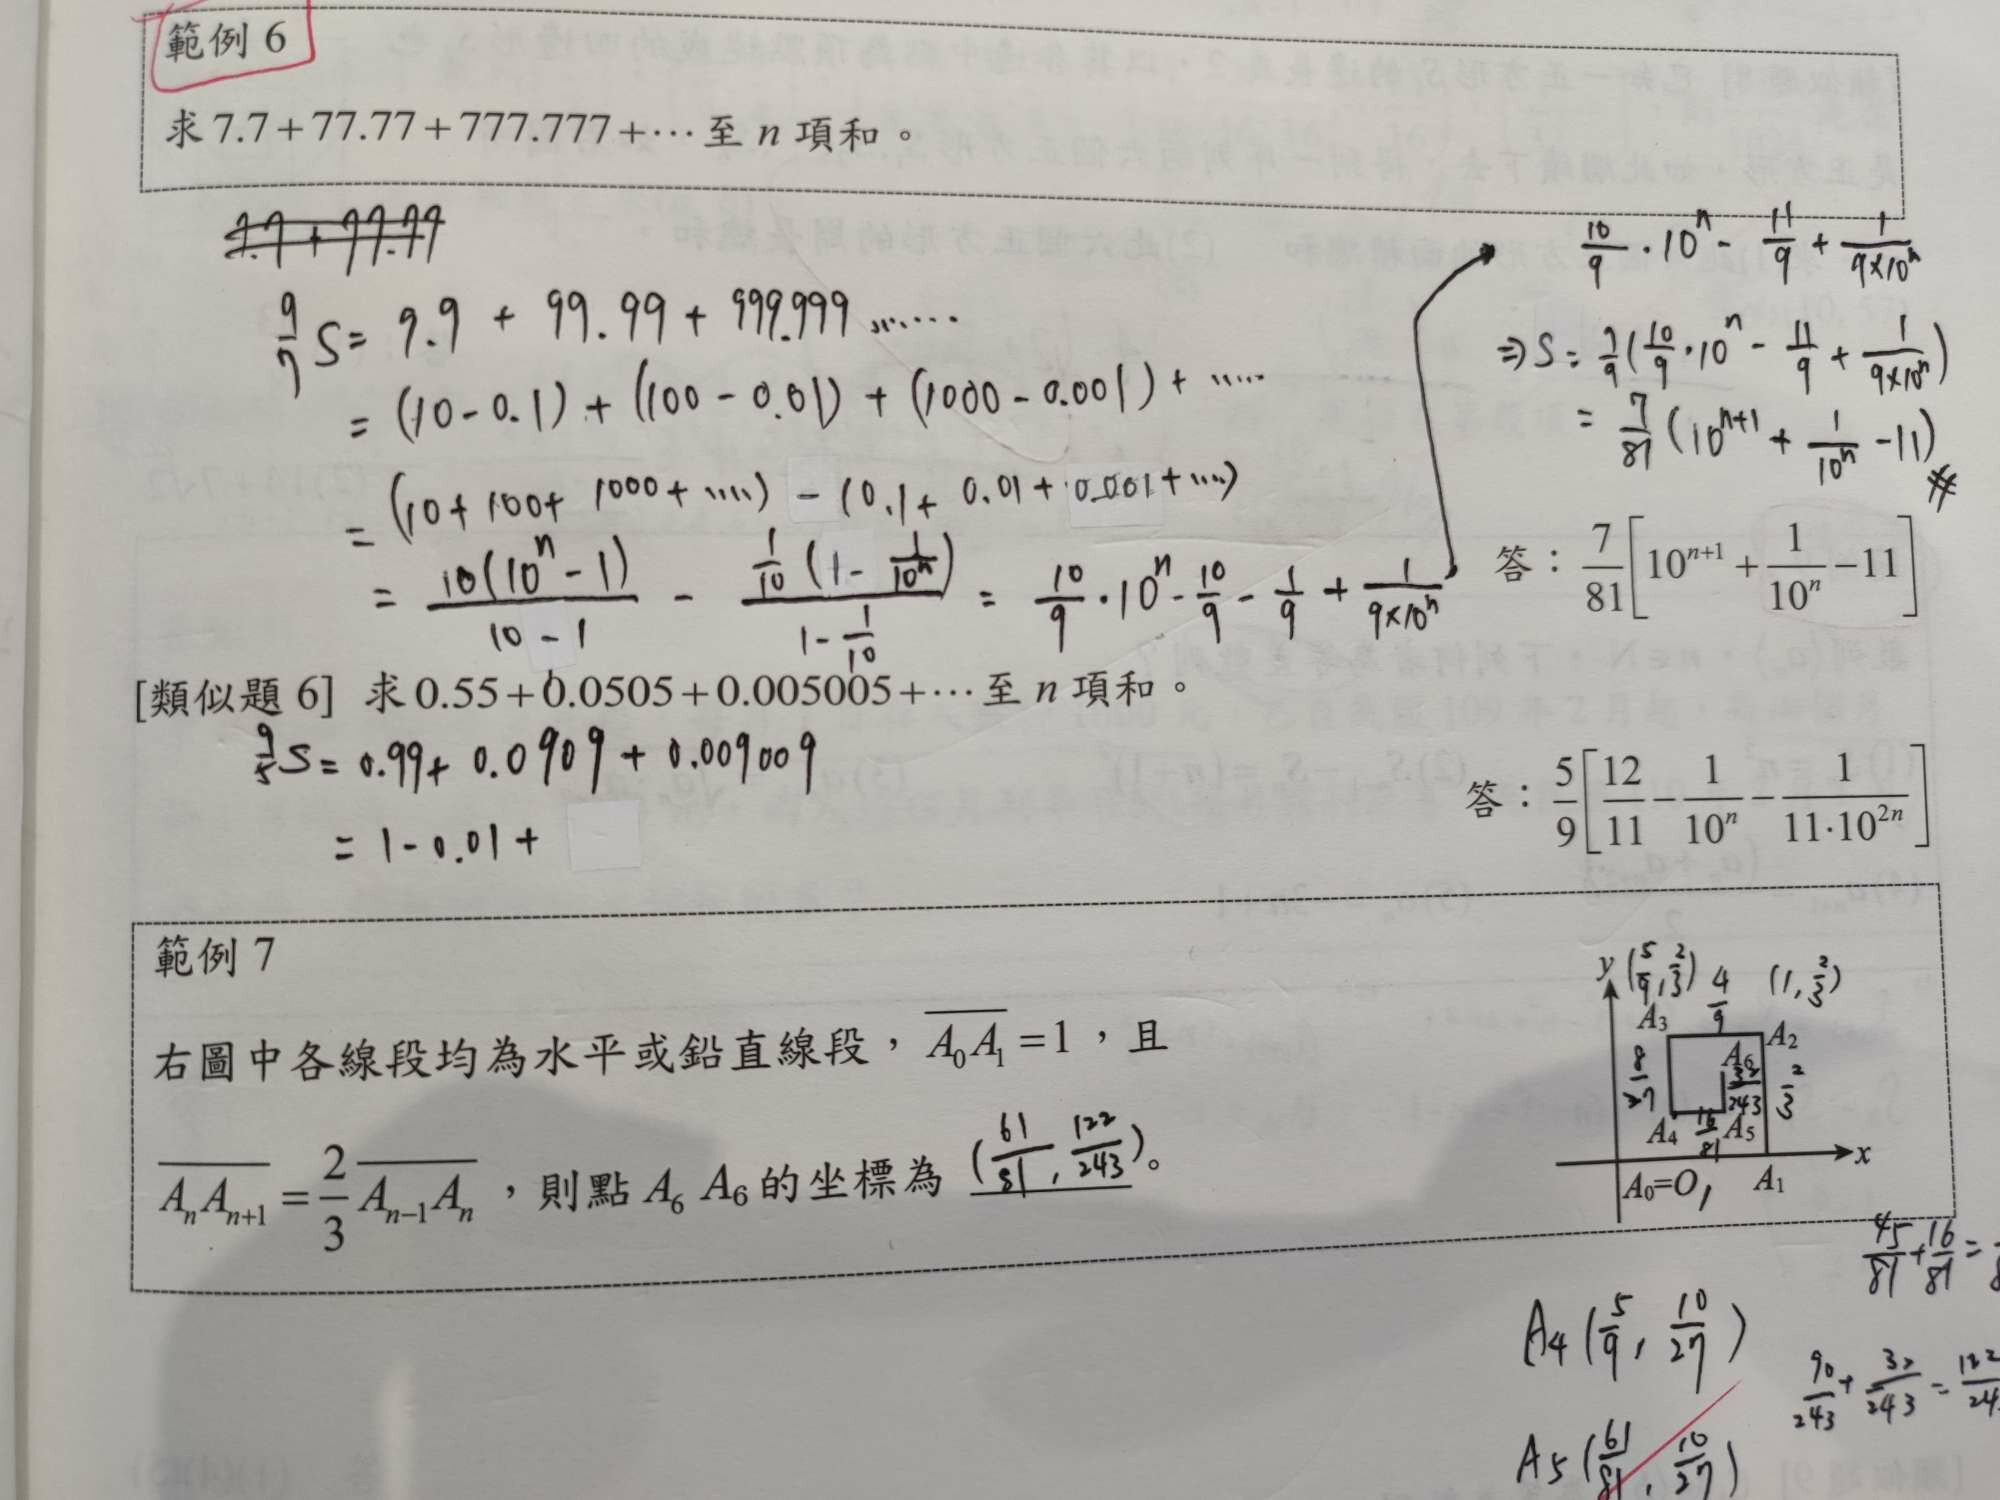 範例 6
求 7.7+77.77+777.777+⋯ 至 n 項和。
7.7 + 77.77
9/7 S = 9.9 + 99.99 + 999.999 ......
= (10-0.1) + (100-0.01) + (1000-0.001) + .....
= (10+100+1000+.....) - (0.1+0.01+0.001+....)
= 10(10^n-1)/(10-1) - 1/10(1-1/10^n)/(1-1/10) = 10/9·10^n - 10/9 - 1/9 + 1/(9×10^n)
10/9·10^n - 11/9 + 1/(9×10^n)
⇒ S = 7/9(10/9·10^n - 11/9 + 1/(9×10^n))
= 7/81(10^(n+1) + 1/10^n - 11) #
答：7/81[10^(n+1) + 1/10^n - 11]
[類似題 6] 求 0.55+0.0505+0.005005+⋯ 至 n 項和。
9/5 S = 0.99 + 0.0909 + 0.009009
= 1-0.01+
答：5/9[12/11 - 1/10^n - 1/(11·10^(2n))]
範例 7
右圖中各線段均為水平或鉛直線段，A₀A₁ = 1，且
AₙAₙ₊₁ = 2/3 Aₙ₋₁Aₙ，則點 A₆ A₆ 的坐標為 (61/81, 122/243)。
y (5/9, 2/3) 4/9 (1, 2/3)
A₃ A₂
8/27 A₆ 32/243 2/3
A₄ 16/81 A₅
x
A₀=O, A₁
45/81+16/81=
A4 (5/9, 10/27)
90/243+32/243=
A5 (61/81, 10/27)